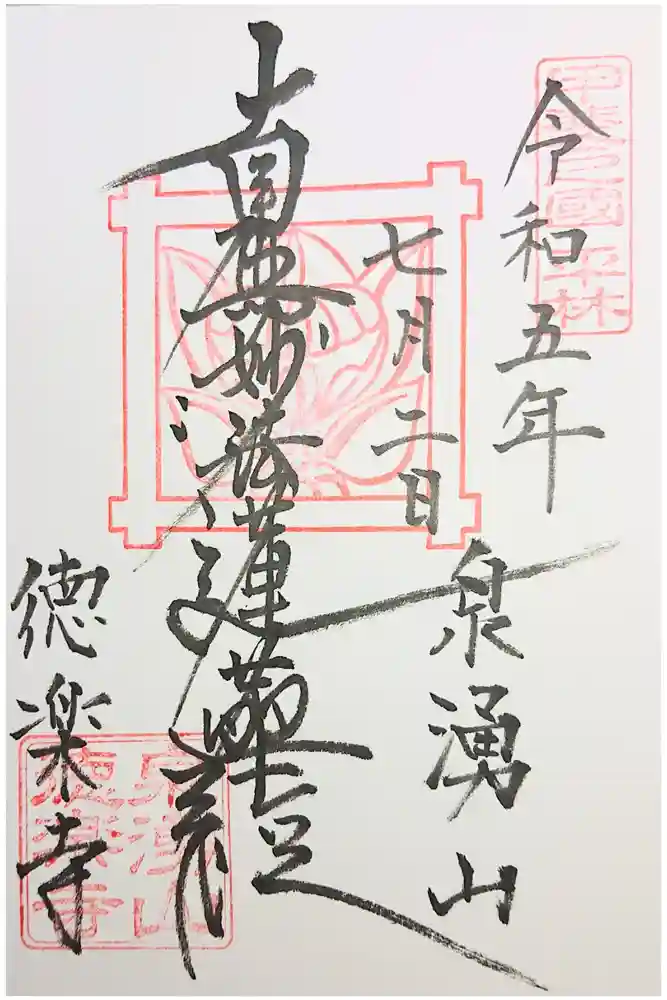 令和五年
七月二日
泉湧山
南無妙法蓮華経
徳楽寺
泉湧山
徳楽寺